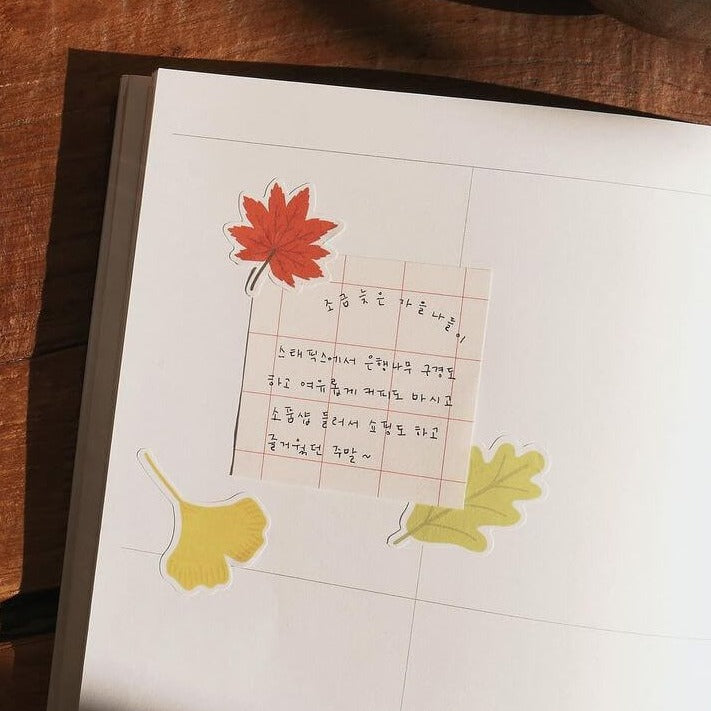 조금 늦은 가을 나들이
스태픽스에서 은행나무 구경도
하고 여유롭게 커피도 마시고
소품샵 들러서 쇼핑도 하고
즐거웠던 주말~